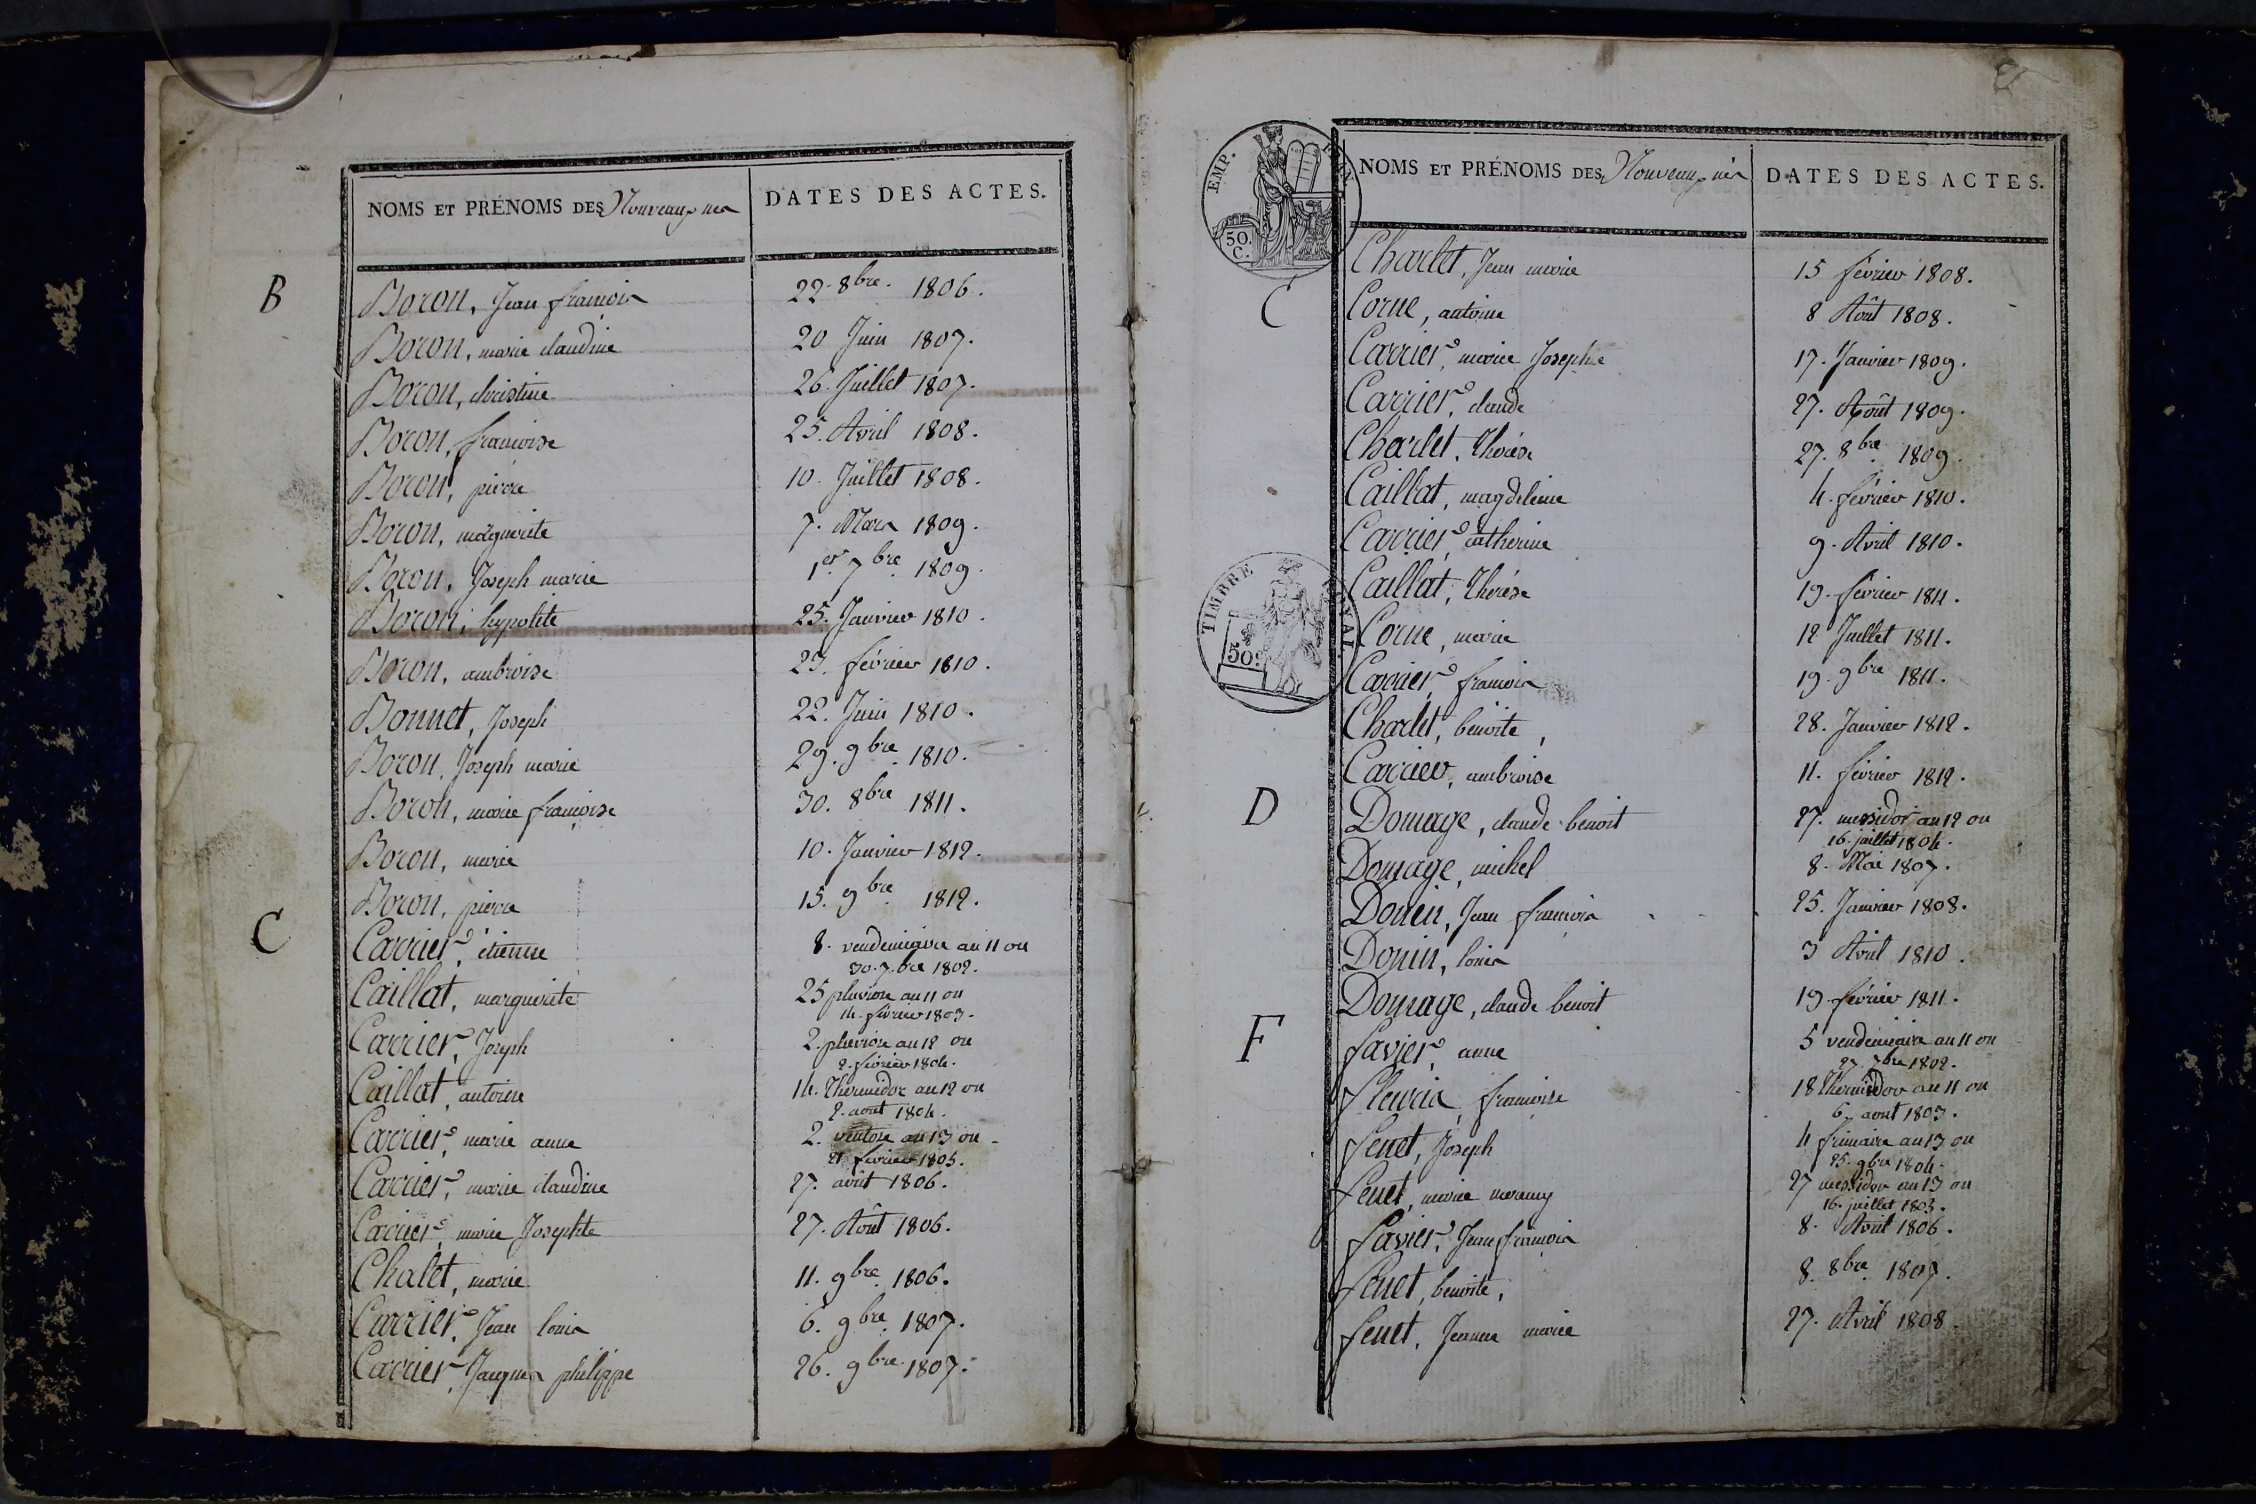 NOMS ET PRÉNOMS DES Nouveaux nés
DATES DES ACTES.
B
Boron, Jean francois 22. 8bre. 1806.
Boron, marie claudine 20 Juin 1807.
Boron, christine 26. Juillet 1807.
Boron, francoise 25. Avril 1808.
Boron, pierre 10. Juillet 1808.
Boron, marguerite 7. Mars 1809.
Boron, Joseph marie 1er. 7bre. 1809.
Boron, hypolite 25. Janvier 1810.
Boron, ambroise 23. février 1810.
Bonnet, Joseph 22. Juin 1810.
Boron, Joseph marie 29. 9bre. 1810.
Boron, marie francoise 30. 8bre 1811.
Boron, marie 10. Janvier 1812.
Boron, pierre 15. 9bre. 1812.
C
Carrier, étienne 8. vendemiaire an 11 ou
30. 7.bre 1802.
Caillat, marguerite 25 pluviose an 11 ou
14. février 1803.
Carrier, Joseph 2. pluviose an 12 ou
2. février 1804.
Caillat, antoine 14. thermidor an 12 ou
2. aout 1804.
Carrier, marie anne 2. ventose an 13 ou
21 février 1805.
Carrier, marie claudine 27. avril 1806.
Carrier, marie Josephte 27. Août 1806.
Chalet, marie 11. 9bre. 1806.
Carrier, Jean louis 6. 9bre. 1807.
Carrier, Jacques philippe 26. 9bre. 1807.
EMP.
50.
C.
NOMS ET PRÉNOMS DES Nouveaux nés
DATES DES ACTES.
Charlet, Jean marie 15 février 1808.
C
Corne, antoine 8 Août 1808.
Carrier, marie Josephte 17. Janvier 1809.
Carrier, claude 27. Août 1809.
Charlet, thérése 27. 8bre 1809.
Caillat, magdeleine 4. février 1810.
Carrier, catherine 9. Avril 1810.
TIMBRE ROYAL
50c
Caillat, thérése 19. février 1811.
Corne, marie 12 Juillet 1811.
Carrier, francois 19. 9bre 1811.
Charlet, benoite, 28. Janvier 1812.
Carrier, ambroise 11. février 1812.
D
Domage, claude benoit 27. messidor an 12 ou
16. juillet 1804.
Domage, michel 8. Mai 1807.
Donin, Jean francois 25. Janvier 1808.
Donin, louis 3 Avril 1810.
Domage, claude benoit 19. février 1811.
F
favier, anne 5 vendemiaire an 11 ou
27 7bre 1802.
fleuria, francoise 18 thermidor an 11 ou
6. aout 1803.
fenet, Joseph 4 frimaire an 13 ou
25. 9bre 1804.
fenet, marie 27 messidor an 13 ou
16. juillet 1805.
favier, Jean francois 8. Avril 1806.
fenet, benoite, 8. 8bre. 1807.
fenet, Jeanne marie 27. Avril 1808.